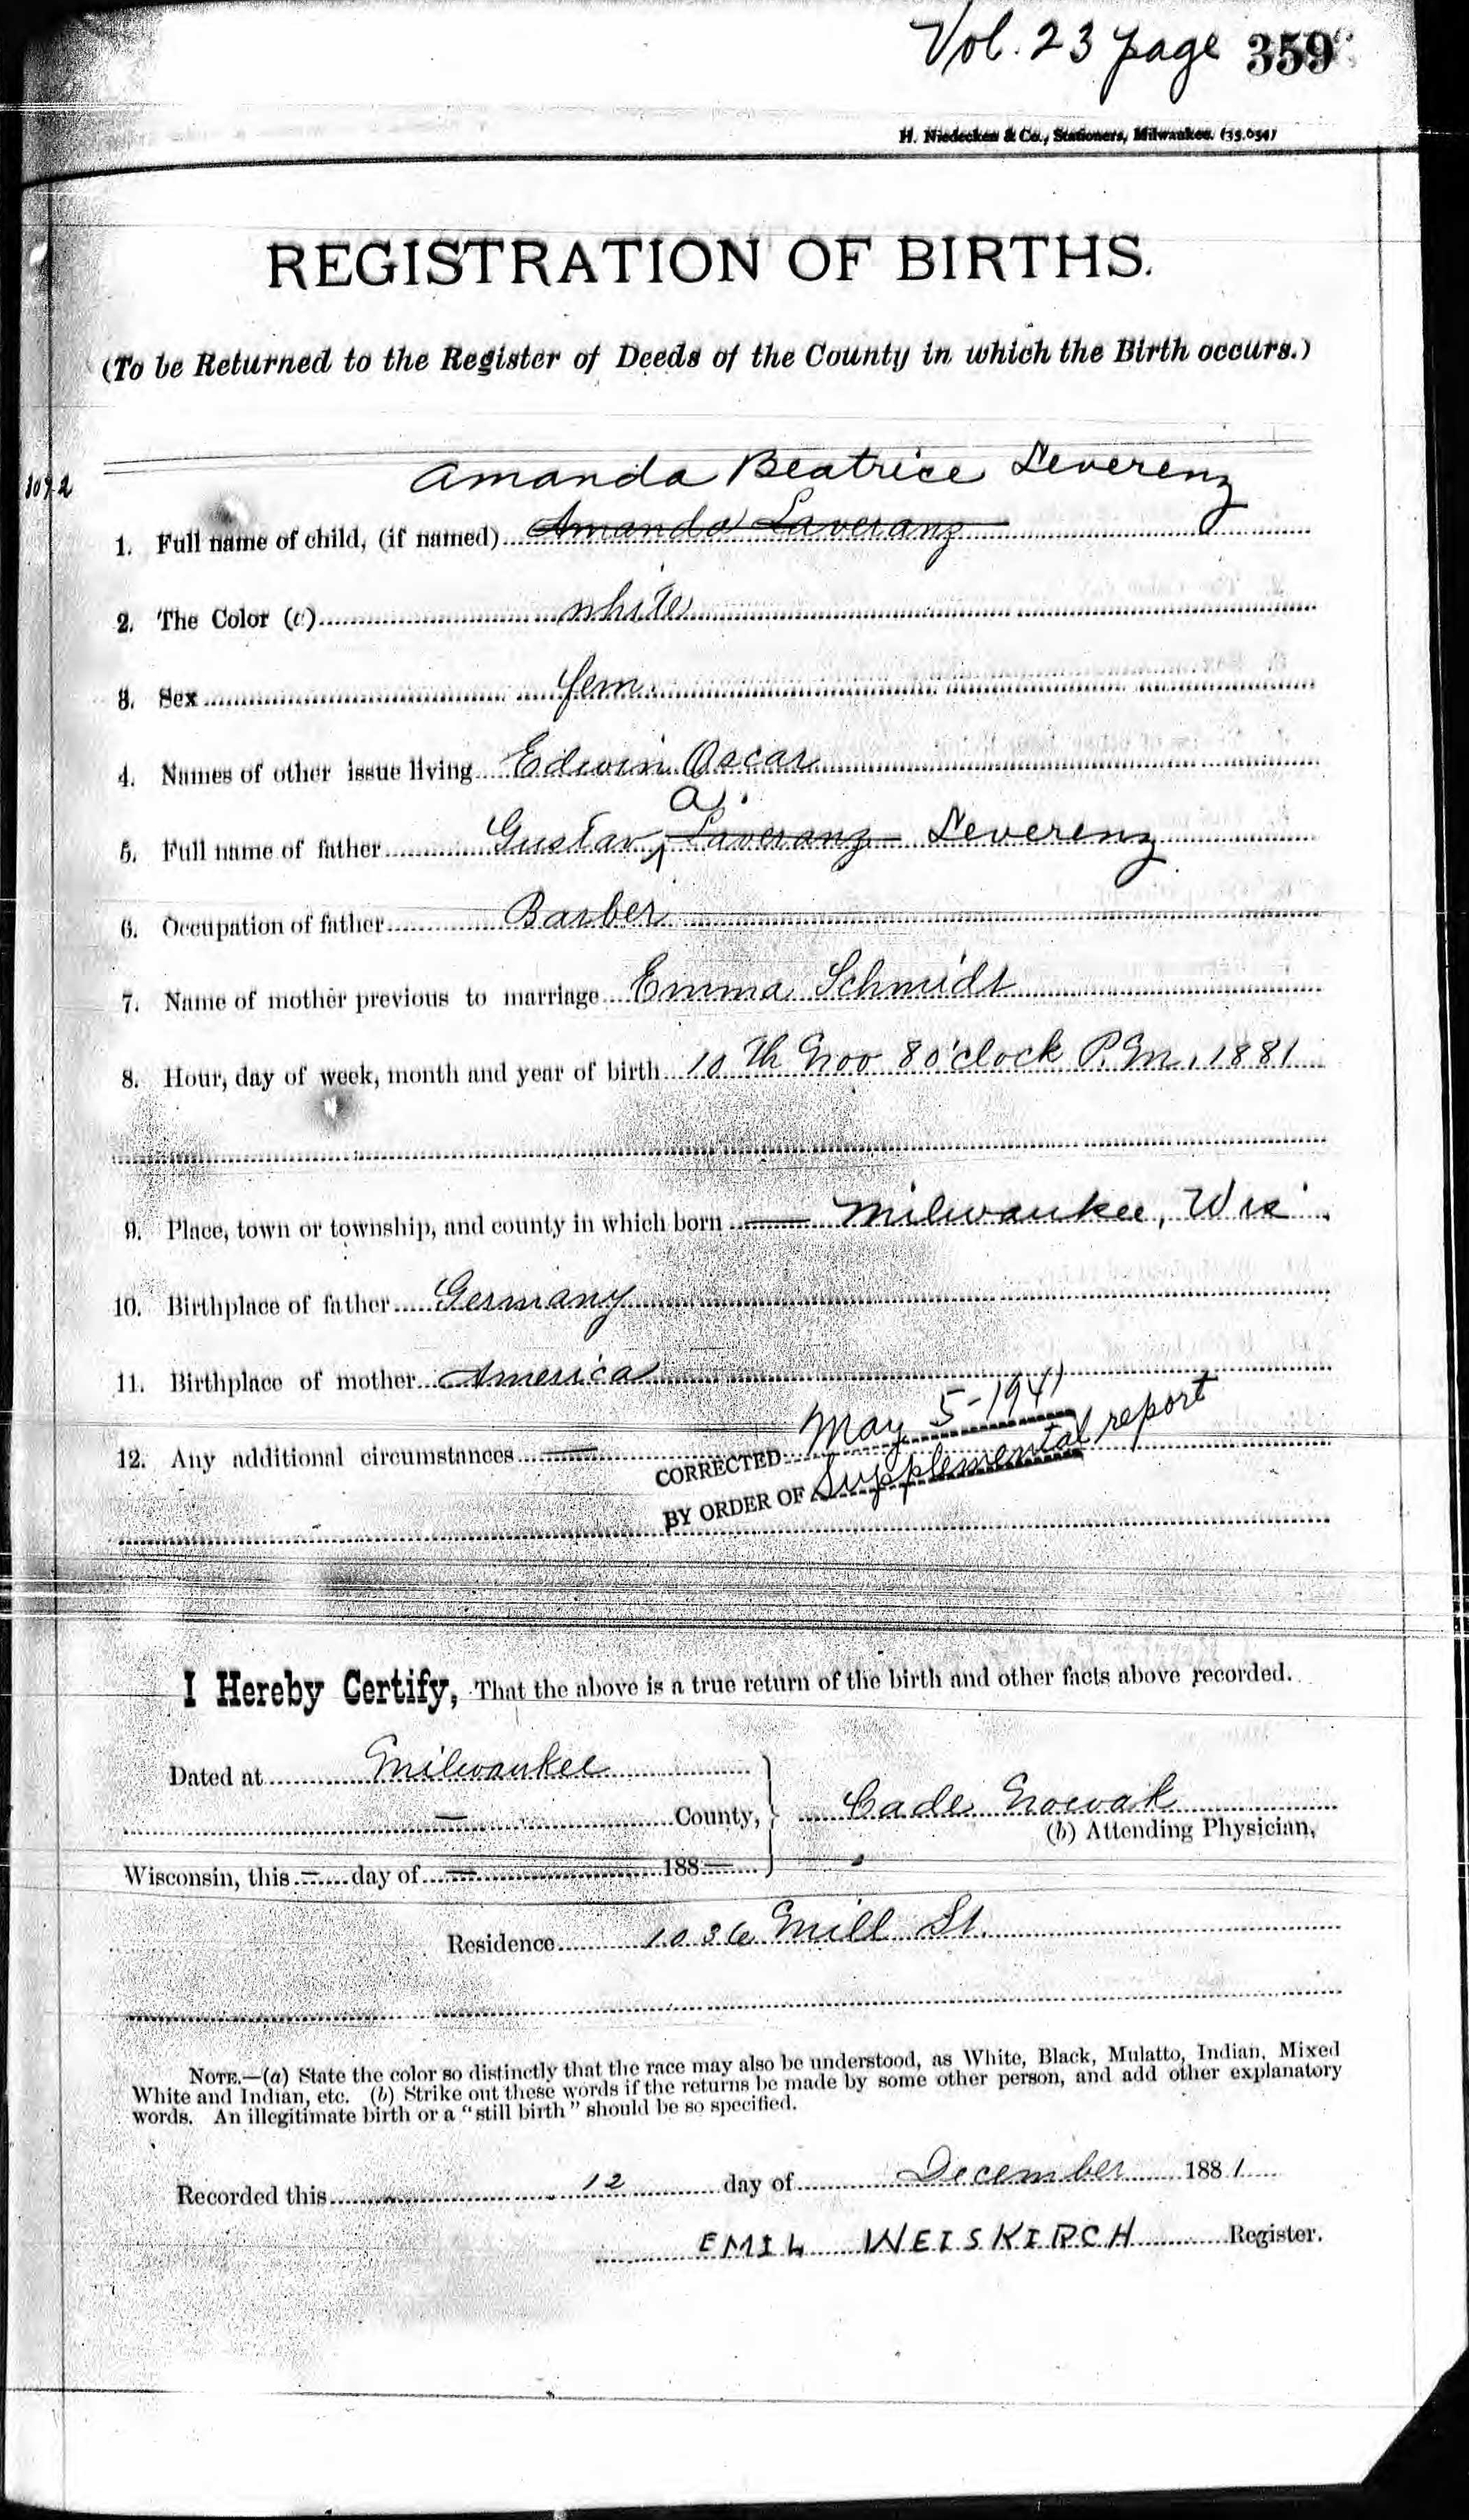 Vol. 23 page 359
H. Niedecken & Co., Stationers, Milwaukee. (35,054)
REGISTRATION OF BIRTHS.
(To be Returned to the Register of Deeds of the County in which the Birth occurs.)
Amanda Beatrice Leverenz
1. Full name of child, (if named) Amanda Laveranz
2. The Color (a) white
3. Sex fem.
4. Names of other issue living Edwin Oscar
a.
5. Full name of father Gustav Laveranz Leverenz
6. Occupation of father Barber
7. Name of mother previous to marriage Emma Schmidt
8. Hour, day of week, month and year of birth 10th Nov 8 o'clock P.M. 1881
9. Place, town or township, and county in which born — Milwaukee, Wis.
10. Birthplace of father Germany
11. Birthplace of mother America
12. Any additional circumstances —
CORRECTED May 5-1941
BY ORDER OF Supplemental report
I Hereby Certify, That the above is a true return of the birth and other facts above recorded.
Dated at Milwaukee
— County,
Cade Nowak
(b) Attending Physician,
Wisconsin, this — day of — 188—
Residence 1036 Mill St.
NOTE.—(a) State the color so distinctly that the race may also be understood, as White, Black, Mulatto, Indian, Mixed
White and Indian, etc. (b) Strike out these words if the returns be made by some other person, and add other explanatory
words. An illegitimate birth or a "still birth" should be so specified.
Recorded this 12 day of December 1881
EMIL WEISKIRCH Register.